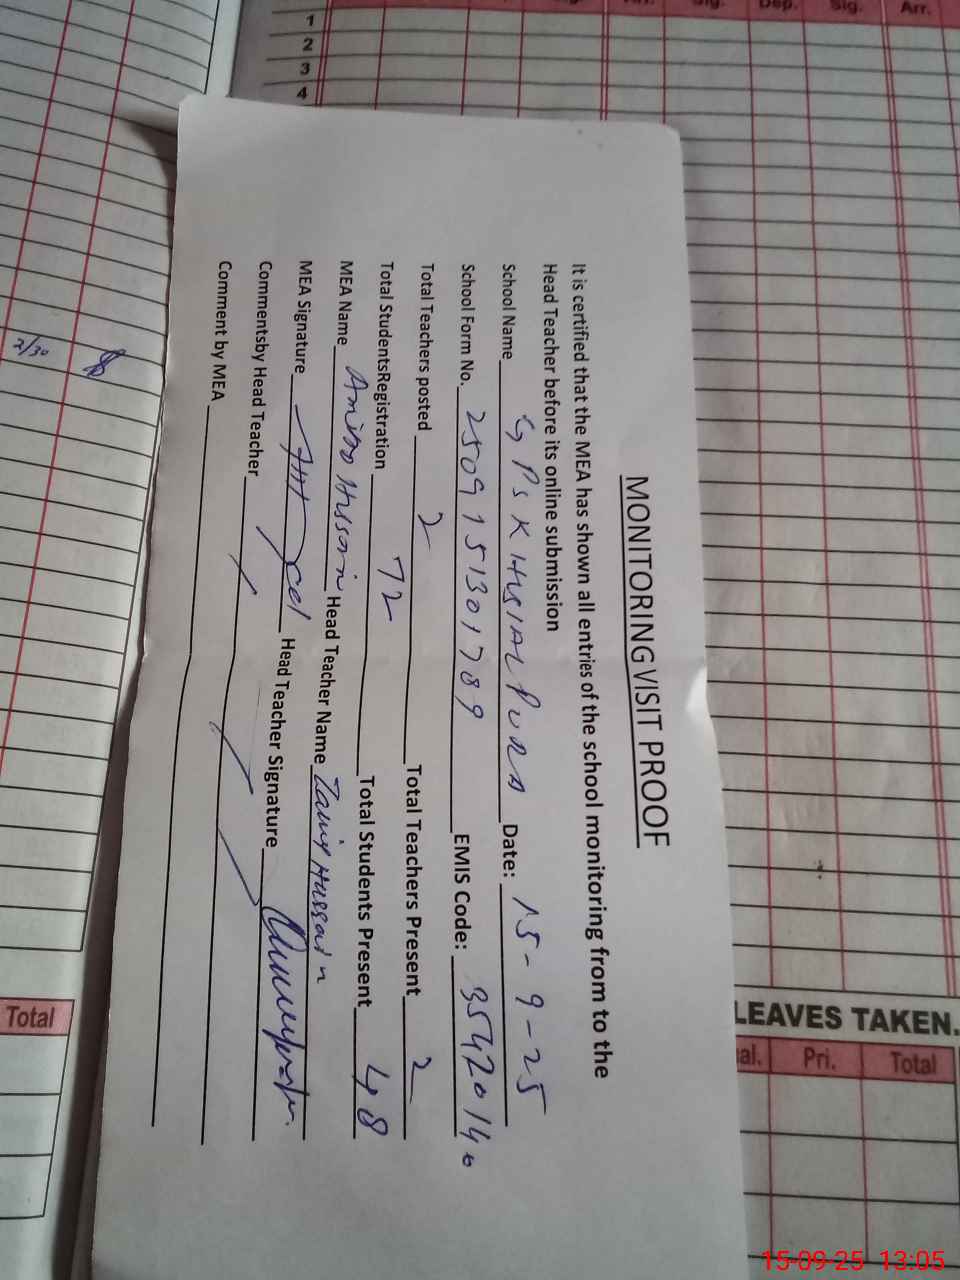 Dep. Sig. Arr.
1
2
3
4
MONITORING VISIT PROOF
It is certified that the MEA has shown all entries of the school monitoring from to the
Head Teacher before its online submission
School Name GPS KHUSIALPURA Date: 15-9-25
School Form No. 2509151301789 EMIS Code: 35420140
Total Teachers posted 2 Total Teachers Present 2
Total StudentsRegistration 72 Total Students Present 48
MEA Name Hussain Head Teacher Name Hussain
MEA Signature Head Teacher Signature
Commentsby Head Teacher
Comment by MEA
2/30
Total
LEAVES TAKEN.
Pri. Total
15-09-25 13:05